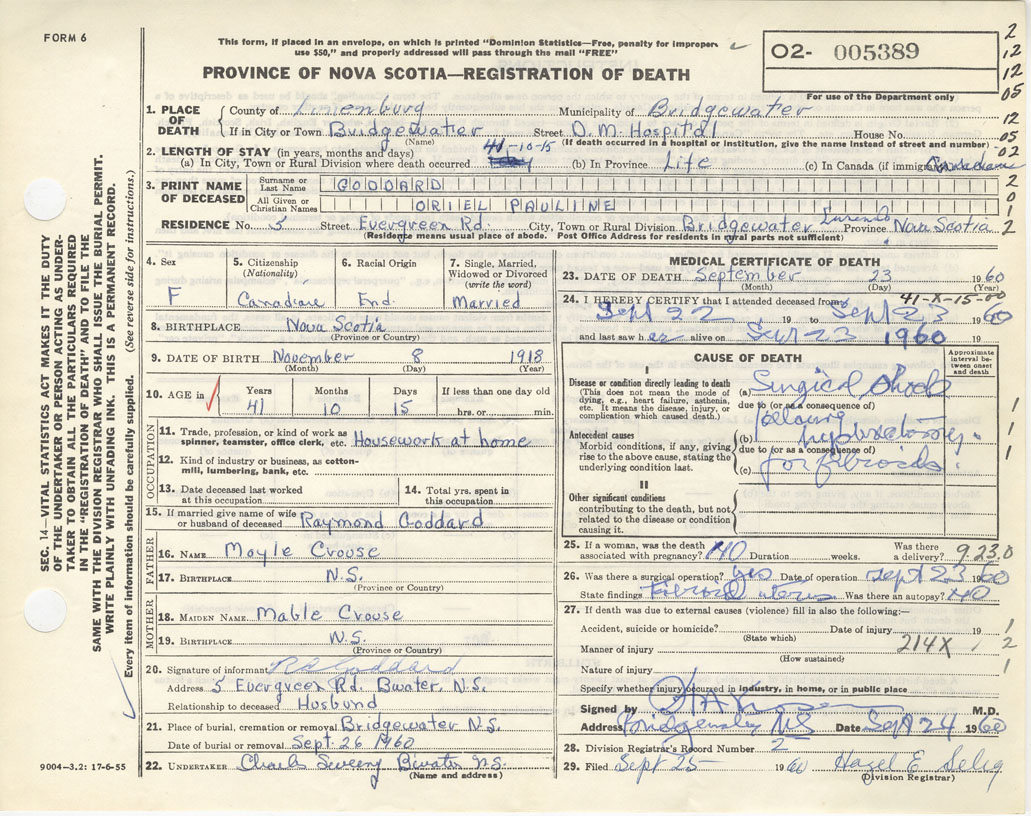 FORM 6
This form, if placed in an envelope, on which is printed "Dominion Statistics—Free, penalty for improper
use $50," and properly addressed will pass through the mail "FREE"
O2- 005389
For use of the Department only
PROVINCE OF NOVA SCOTIA—REGISTRATION OF DEATH
2
12
12
05
12
05
02
2
0
1
2
1. PLACE OF DEATH
County of Lunenburg Municipality of Bridgewater
If in City or Town Bridgewater Street D.M. Hospital House No.
(Name) (If death occurred in a hospital or institution, give the name instead of street and number)
2. LENGTH OF STAY (in years, months and days) 41-10-15
(a) In City, Town or Rural Division where death occurred (b) In Province Life (c) In Canada (if immigrant) Canadian
3. PRINT NAME OF DECEASED
Surname or Last Name GODDARD
All Given or Christian Names ORIEL PAULINE
RESIDENCE No. 5 Street Evergreen Rd. City, Town or Rural Division Bridgewater Lunenb Province Nova Scotia
(Residence means usual place of abode. Post Office Address for residents in rural parts not sufficient)
4. Sex
F
5. Citizenship
(Nationality)
Canadian
6. Racial Origin
End.
7. Single, Married,
Widowed or Divorced
(write the word)
Married
8. BIRTHPLACE Nova Scotia
(Province or Country)
9. DATE OF BIRTH November 8 1918
(Month) (Day) (Year)
10. AGE in
Years Months Days If less than one day old
41 10 15 hrs. or min.
OCCUPATION
11. Trade, profession, or kind of work as
spinner, teamster, office clerk, etc. Housework at home
12. Kind of industry or business, as cotton-
mill, lumbering, bank, etc.
13. Date deceased last worked
at this occupation
14. Total yrs. spent in
this occupation
15. If married give name of wife
or husband of deceased Raymond Goddard
FATHER
16. NAME Moyle Crouse
17. BIRTHPLACE N.S.
(Province or Country)
MOTHER
18. MAIDEN NAME Mable Crouse
19. BIRTHPLACE N.S.
(Province or Country)
20. Signature of informant Rd Goddard
Address 5 Evergreen Rd. Bwater, N.S.
Relationship to deceased Husbund
21. Place of burial, cremation or removal Bridgewater N.S.
Date of burial or removal Sept. 26 1960
22. UNDERTAKER Charles Sweeny Bwater N.S.
(Name and address)
MEDICAL CERTIFICATE OF DEATH
23. DATE OF DEATH September 23 1960
(Month) (Day) (Year)
41-X-15-00
24. I HEREBY CERTIFY that I attended deceased from
Sept 22, 19 to Sept 23 1960
and last saw her alive on Sept 23 1960 19
CAUSE OF DEATH
Approximate
interval be-
tween onset
and death
I
Disease or condition directly leading to death
(This does not mean the mode of
dying, e.g., heart failure, asthenia,
etc. It means the disease, injury, or
complication which caused death.)
(a) Surgical Shock
due to (or as a consequence of)
Antecedent causes
Morbid conditions, if any, giving
rise to the above cause, stating the
underlying condition last.
(b) following hysterectomy.
due to (or as a consequence of)
(c) for fibroids.
1
1
1
1
II
Other significant conditions
contributing to the death, but not
related to the disease or condition
causing it.
25. If a woman, was the death
associated with pregnancy? NO Duration weeks. Was there
a delivery?
9.23.0
26. Was there a surgical operation? yes Date of operation Sept 23 1960
State findings Fibroid uterus Was there an autopsy? NO
27. If death was due to external causes (violence) fill in also the following:—
Accident, suicide or homicide? Date of injury 19
(State which)
Manner of injury 214X
(How sustained)
Nature of injury
1
2
1
Specify whether injury occurred in industry, in home, or in public place
Signed by M.D.
Address Bridgewater NS Date Sept 24 1960
28. Division Registrar's Record Number 2
29. Filed Sept 25 1960 Hazel E Selig
(Division Registrar)
SEC. 14—VITAL STATISTICS ACT MAKES IT THE DUTY
OF THE UNDERTAKER OR PERSON ACTING AS UNDER-
TAKER TO OBTAIN ALL THE PARTICULARS REQUIRED
IN THE "REGISTRATION OF DEATH" AND FILE THE
SAME WITH THE DIVISION REGISTRAR WHO SHALL ISSUE THE BURIAL PERMIT.
WRITE PLAINLY WITH UNFADING INK. THIS IS A PERMANENT RECORD.
Every item of information should be carefully supplied. (See reverse side for instructions.)
9004-3.2: 17-6-55